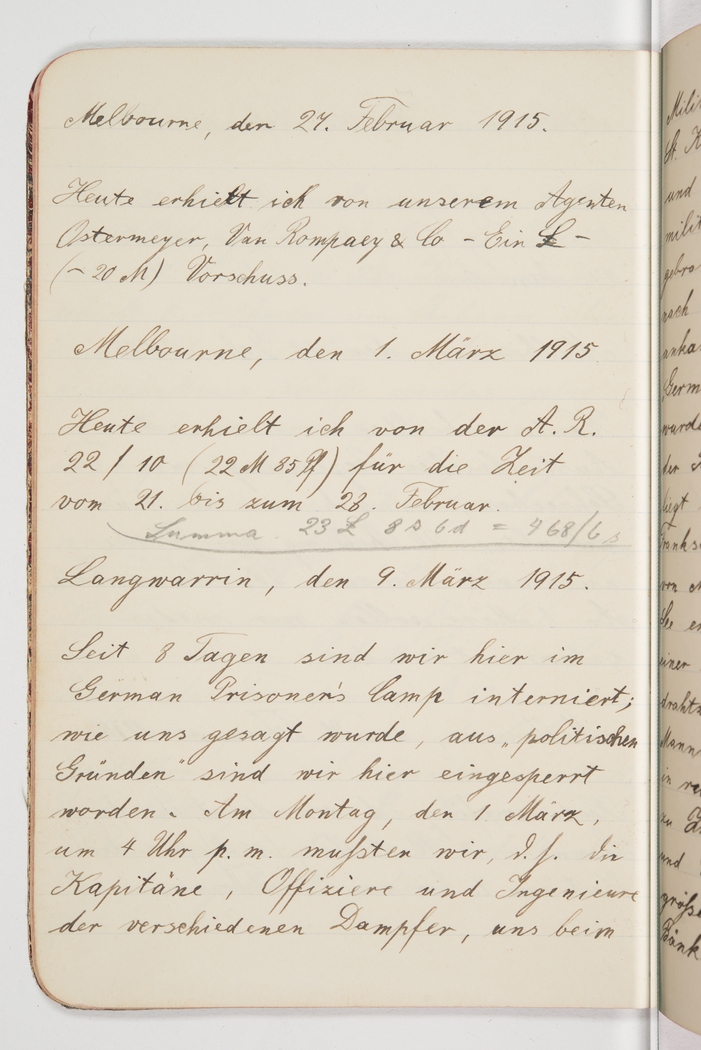 Melbourne, den 27. Februar 1915.
Heute erhielt ich von unserem Agenten
Ostermeyer, Van Rompaey & Co - Ein £ -
(- 20 M) Vorschuss.
Melbourne, den 1. März 1915
Heute erhielt ich von der A. R.
22 / 10 (22 M 85 Pf) für die Zeit
vom 21. bis zum 28. Februar.
Summa. 23 £ 8 s 6 d = 468/6 s
Langwarrin, den 9. März 1915.
Seit 8 Tagen sind wir hier im
German Prisoner's Camp interniert;
wie uns gesagt wurde, aus „politischen
Gründen" sind wir hier eingesperrt
worden. Am Montag, den 1 März,
um 4 Uhr p. m. mußten wir, d. h. die
Kapitäne, Offiziere und Ingenieure
der verschiedenen Dampfer, uns beim
Mili
St. K
und
milit
gebra
nach
anka
Germ
wurde
der
liegt
von
See er
einer
draht
Mann
in
zu
und
größe
Bänk